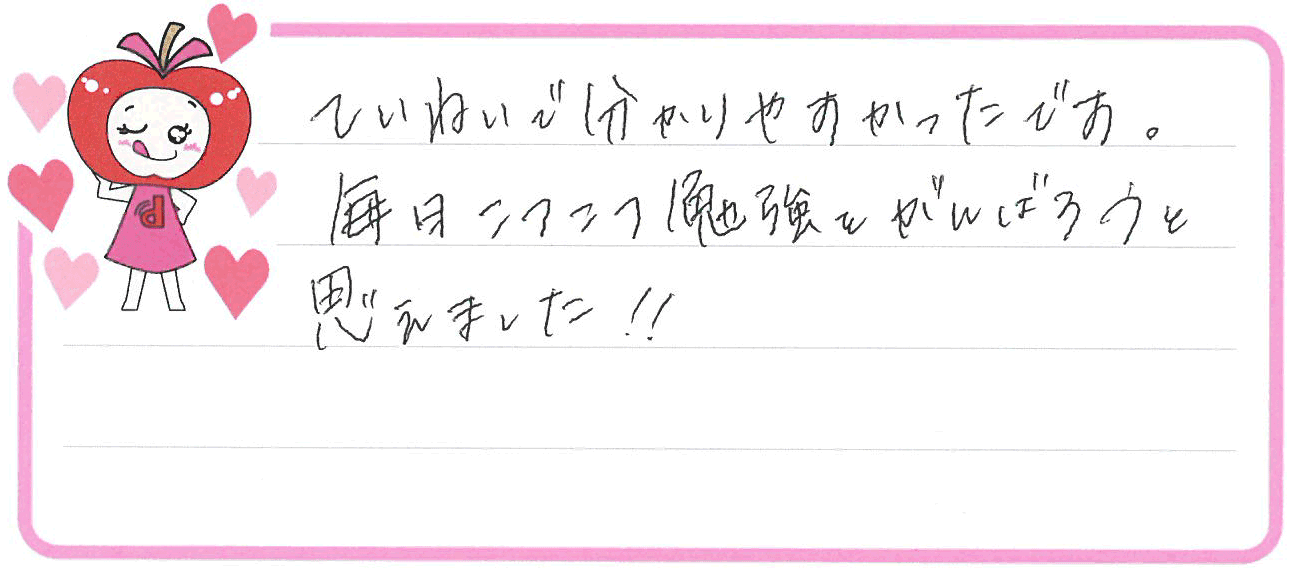 ていねいで分かりやすかったです。
毎日コツコツ勉強をがんばろうと
思えました!!